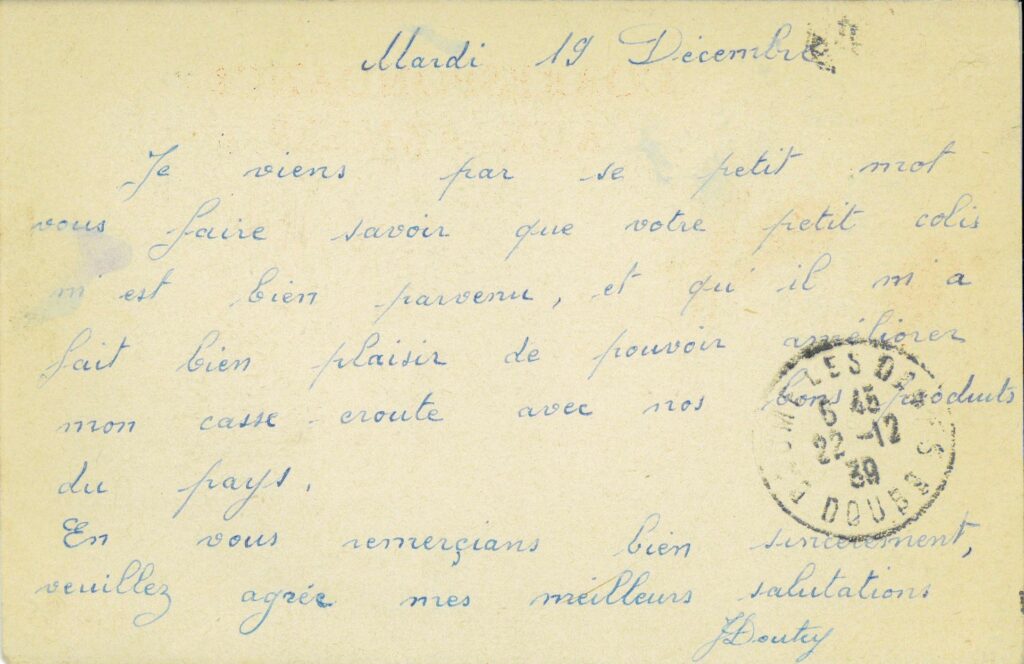 Mardi 19 Décembre
Je viens par se petit mot
vous faire savoir que votre petit colis
m'est bien parvenu, et qu'il m'a
fait bien plaisir de pouvoir améliorer
mon casse-croute avec nos bons produits
du pays.
En vous remerçians bien sincèrement,
veuillez agrée mes meilleurs salutations
BAUME-LES-DAMES
5 45
22-12
39
DOUBS